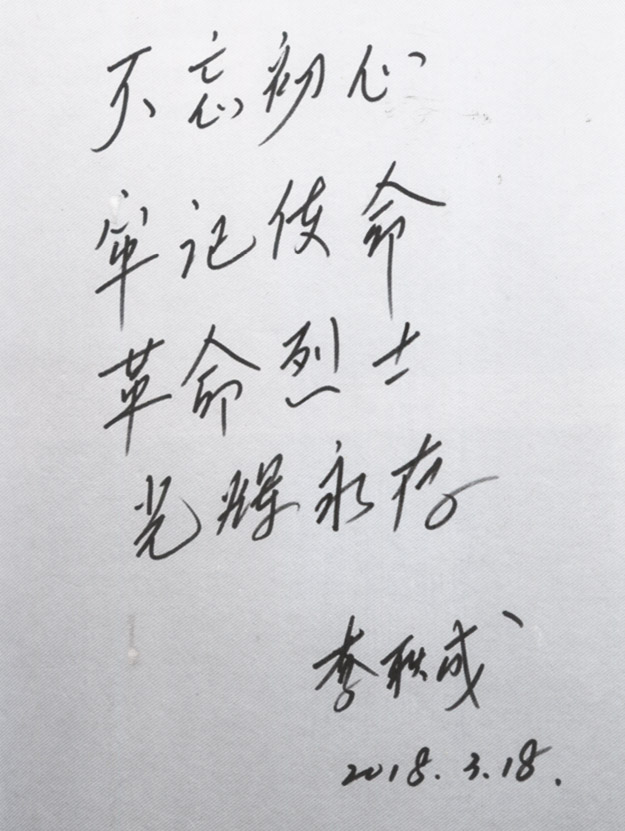 不忘初心
牢记使命
革命烈士
光辉永存
李联成
2018.3.18.